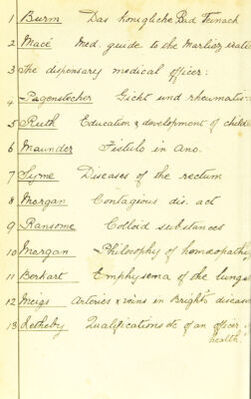 1 Burm Das königliche Bad Teinach
2 Macé Med. guide to the Marlioz
3 The dispensary medical officer:
4 Pagenstecher Gicht und rheumatism
5 Ruth Education & development of
6 Maunder Fistula in Ano.
7 Syme Diseases of the rectum
8 Morgan Contagious dis. act
9 Ransome Colloid substances
10 Morgan Philosophy of homœopathy
11 Berkart Emphysema of the lungs
12 Meigs Arteries & veins in Bright's disease
13 Letheby Qualifications etc of an officer
health